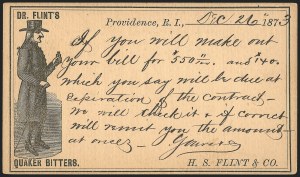 DR. FLINT'S
Providence, R. I., Dec 26 1873
If you will make out
your bill for 550 m. and 40.
which you say will be due at
Expiration of the contract—
we will check it & if correct
will remit you the amount
at once— Yours
QUAKER BITTERS.
H. S. FLINT & CO.